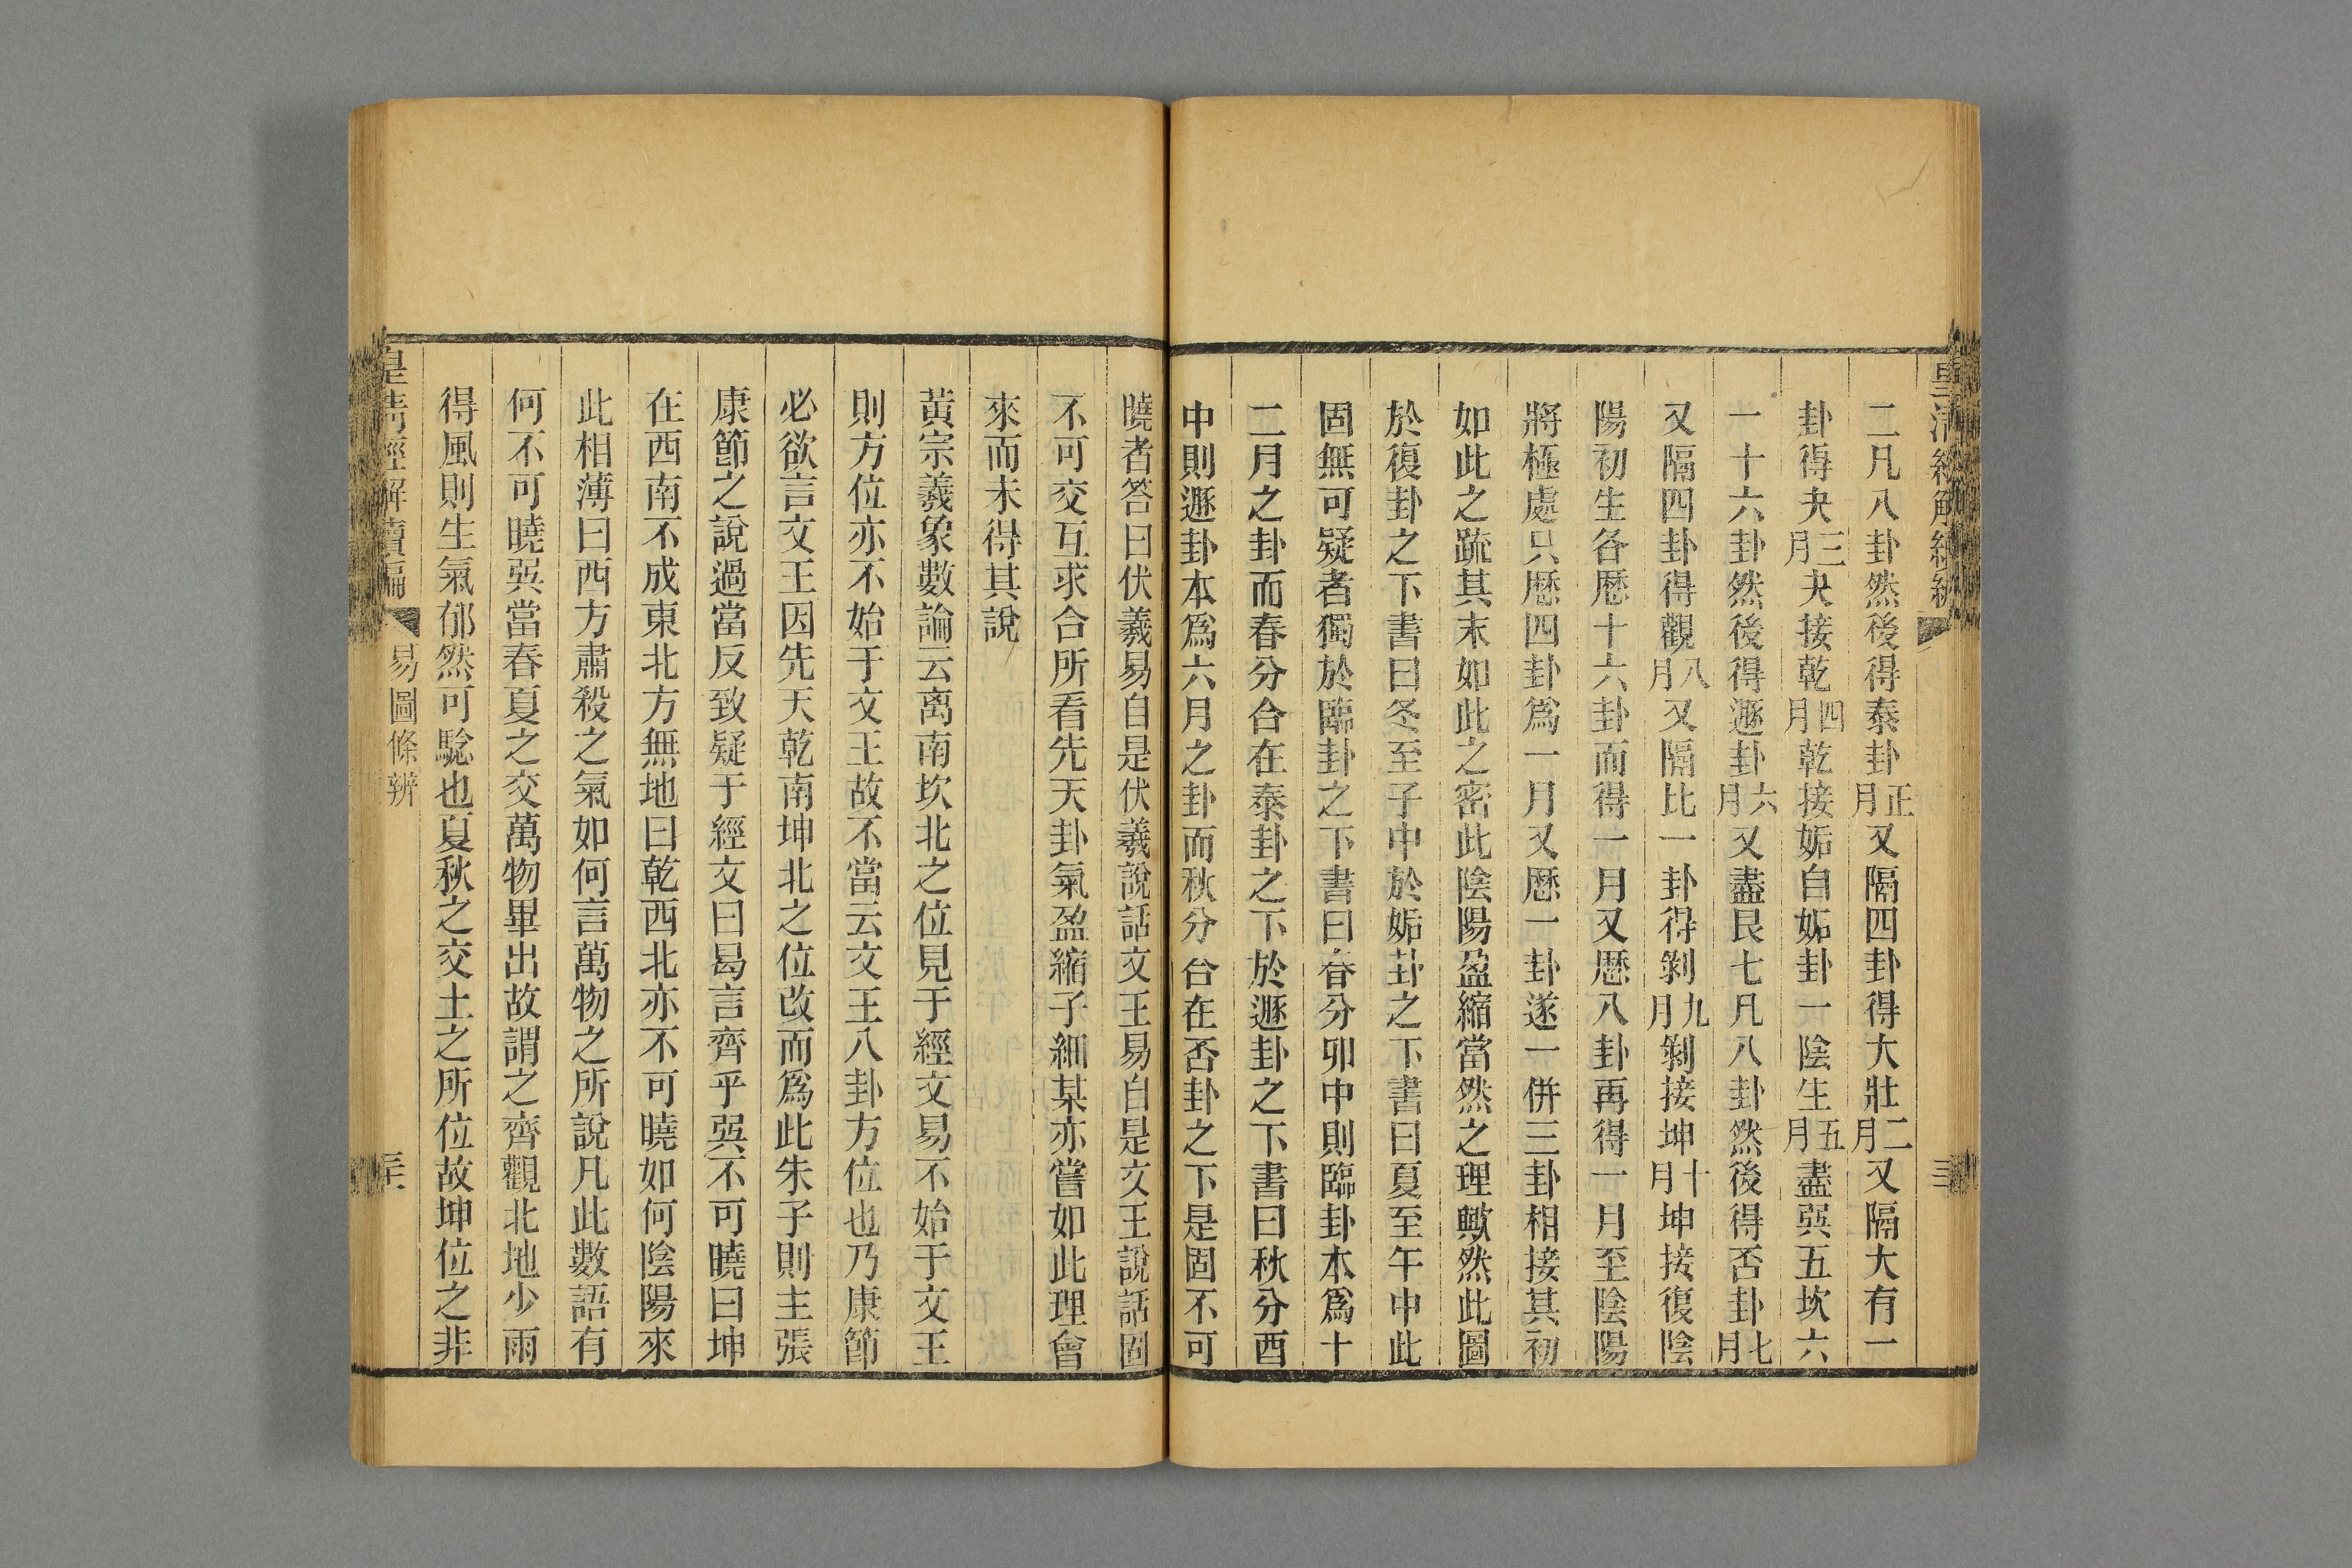 皇清經解續編
二凡八卦然後得泰卦正月又隔四卦得大壯二月又隔大有一
卦得夬三月夬接乾四月乾接姤自姤卦一陰生五月盡巽五坎六
一十六卦然後得遯卦六月又盡艮七凡八卦然後得否卦七月
又隔四卦得觀八月又隔比一卦得剝九月剝接坤十月坤接復陰
陽初生各歷十六卦而得一月又歷八卦再得一月至陰陽
將極處只歷四卦爲一月又歷一卦遂一併三卦相接其初
如此之疏其末如此之密此陰陽盈縮當然之理歟然此圖
於復卦之下書曰冬至子中於姤卦之下書曰夏至午中此
固無可疑者獨於臨卦之下書曰春分卯中則臨卦本爲十
二月之卦而春分合在泰卦之下於遯卦之下書曰秋分酉
中則遯卦本爲六月之卦而秋分合在否卦之下是固不可
曉者答曰伏羲易自是伏羲說話文王易自是文王說話固
不可交互求合所看先天卦氣盈縮子細某亦嘗如此理會
來而未得其說
黃宗羲象數論云离南坎北之位見于經文易不始于文王
則方位亦不始于文王故不當云文王八卦方位也乃康節
必欲言文王因先天乾南坤北之位改而爲此朱子則主張
康節之說過當反致疑于經文曰曷言齊乎巽不可曉曰坤
在西南不成東北方無地曰乾西北亦不可曉如何陰陽來
此相薄曰西方肅殺之氣如何言萬物之所說凡此數語有
何不可曉巽當春夏之交萬物畢出故謂之齊觀北地少雨
得風則生氣郁然可騐也夏秋之交土之所位故坤位之非
皇清經解續編 易圖條辨